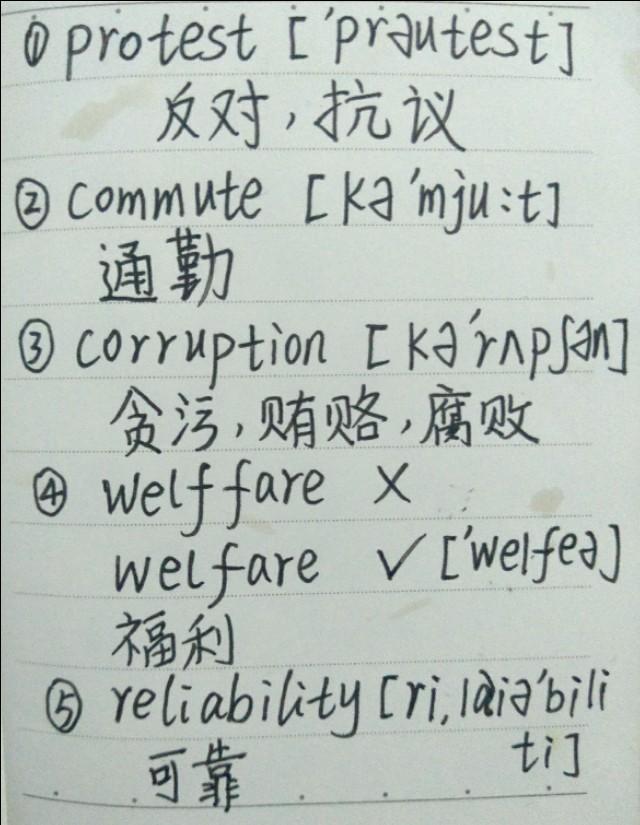 ① protest ['prəutest]
反对,抗议
② commute [kə'mju:t]
通勤
③ corruption [kə'rʌpʃən]
贪污,贿赂,腐败
④ welffare ×
welfare ✓ ['welfeə]
福利
⑤ reliability [ri,laiə'bili
ti]
可靠